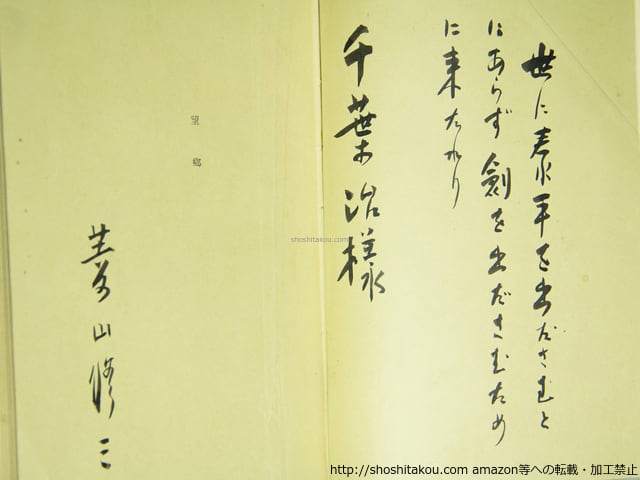 世に泰平を出ださむと
にあらず 劍を出ださむため
に来たれり
千葉治様
望郷
山修三
shoshitakou.com
http://shoshitakou.com amazon等への転載・加工禁止